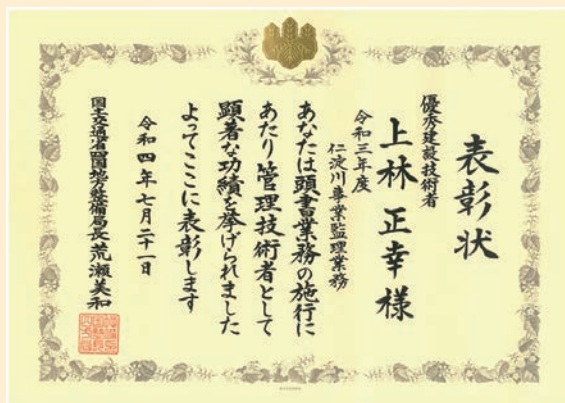 表彰状
優秀建設技術者
上林正幸様
令和三年度
仁淀川事業監理業務
あなたは頭書業務の施行に
あたり管理技術者として
顕著な功績を挙げられました
よってここに表彰します
令和四年七月二十一日
国土交通省四国地方整備局長荒瀬美和